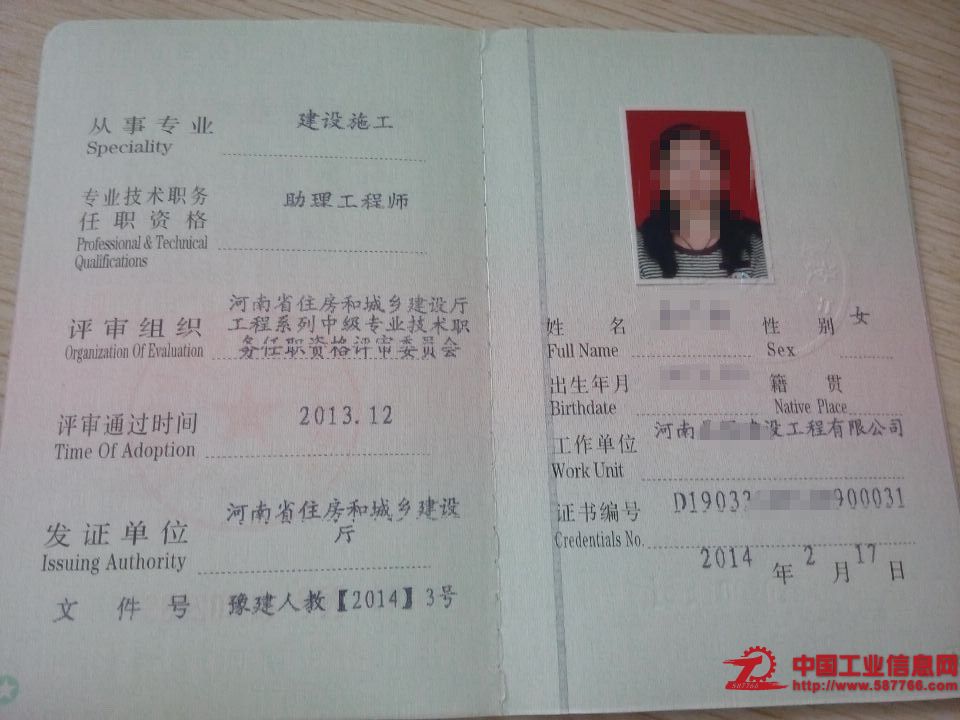 从事专业 建设施工
Speciality
专业技术职务 助理工程师
任职资格
Professional & Technical
Qualifications
河南省住房和城乡建设厅
评审组织 工程系列中级专业技术职
Organization Of Evaluation 务任职资格评审委员会
评审通过时间 2013.12
Time Of Adoption
发证单位 河南省住房和城乡建设
厅
Issuing Authority
文件号 豫建人教【2014】3号
姓名 性别 女
Full Name Sex
出生年月 籍贯
Birthdate Native Place
工作单位 河南 设工程有限公司
Work Unit
证书编号 D19033 900031
Credentials No.
2014 年 2 月 17 日
中国工业信息网
http://www.587766.com
587766